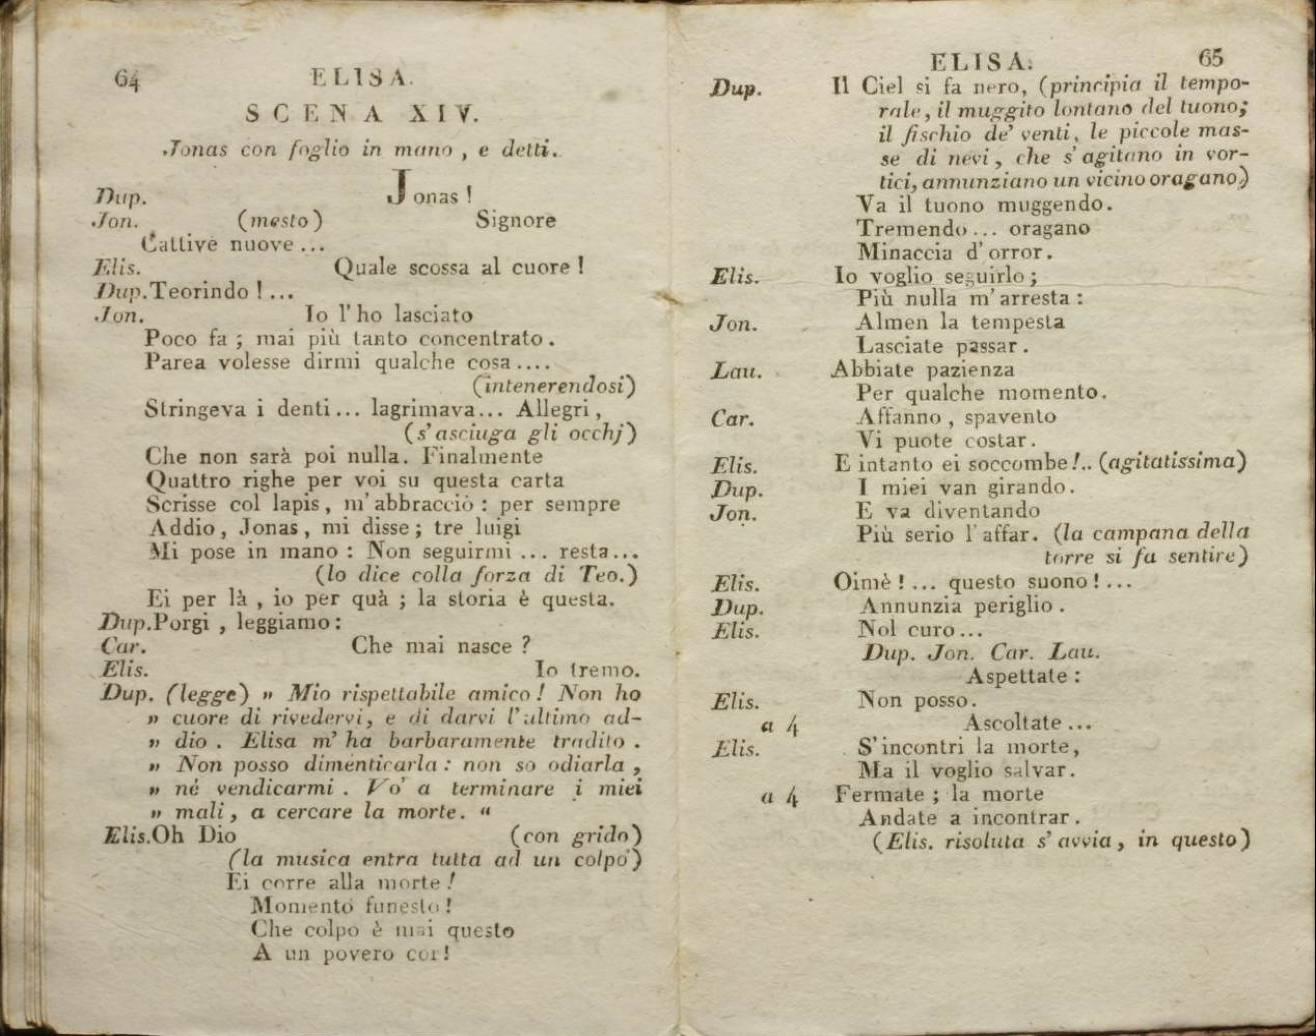 64 ELISA.
SCENA XIV.
Jonas con foglio in mano, e detti.
Dup. Jonas!
Jon. (mesto) Signore
Cattive nuove...
Elis. Quale scossa al cuore!
Dup. Teorindo!...
Jon. Io l'ho lasciato
Poco fa; mai più tanto concentrato.
Parea volesse dirmi qualche cosa....
(intenerendosi)
Stringeva i denti... lagrimava... Allegri,
(s'asciuga gli occhj)
Che non sarà poi nulla. Finalmente
Quattro righe per voi su questa carta
Scrisse col lapis, m'abbracciò: per sempre
Addio, Jonas, mi disse; tre luigi
Mi pose in mano: Non seguirmi... resta...
(lo dice colla forza di Teo.)
Ei per là, io per quà; la storia è questa.
Dup. Porgi, leggiamo:
Car. Che mai nasce?
Elis. Io tremo.
Dup. (legge) » Mio rispettabile amico! Non ho
» cuore di rivedervi, e di darvi l'ultimo ad-
» dio. Elisa m'ha barbaramente tradito.
» Non posso dimenticarla: non so odiarla,
» né vendicarmi. Vo' a terminare i miei
» mali, a cercare la morte. “
Elis. Oh Dio (con grido)
(la musica entra tutta ad un colpo)
Ei corre alla morte!
Momento funesto!
Che colpo è mai questo
A un povero cor!
ELISA. 65
Dup. Il Ciel si fa nero, (principia il tempo-
rale, il muggito lontano del tuono;
il fischio de' venti, le piccole mas-
se di nevi, che s'agitano in vor-
tici, annunziano un vicino oragano)
Va il tuono muggendo.
Tremendo... oragano
Minaccia d'orror.
Elis. Io voglio seguirlo;
Più nulla m'arresta:
Jon. Almen la tempesta
Lasciate passar.
Lau. Abbiate pazienza
Per qualche momento.
Car. Affanno, spavento
Vi puote costar.
Elis. E intanto ei soccombe!.. (agitatissima)
Dup. I miei van girando.
Jon. E va diventando
Più serio l'affar. (la campana della
torre si fa sentire)
Elis. Oimè!... questo suono!...
Dup. Annunzia periglio.
Elis. Nol curo...
Dup. Jon. Car. Lau.
Aspettate:
Elis. Non posso.
a 4 Ascoltate...
Elis. S'incontri la morte,
Ma il voglio salvar.
a 4 Fermate; la morte
Andate a incontrar.
(Elis. risoluta s'avvia, in questo)